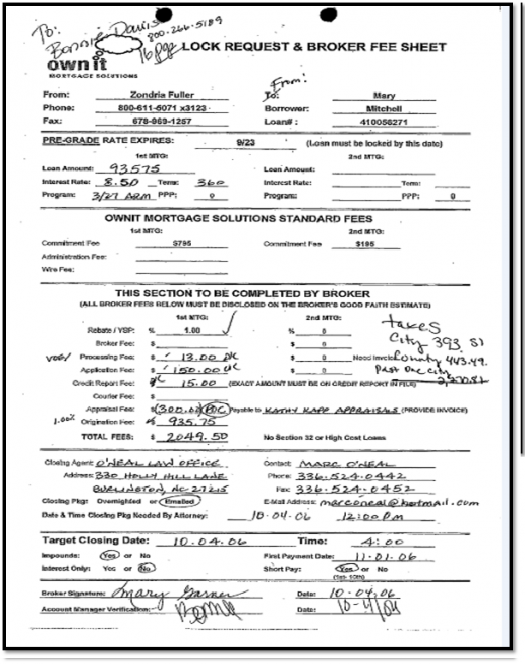 To: Bonnie Davis
800-266-5189
16 pgs
LOCK REQUEST & BROKER FEE SHEET
ownit
MORTGAGE SOLUTIONS
From:
From: Zondria Fuller To: Mary
Phone: 800-611-6071 x3123 Borrower: Mitchell
Fax: 678-969-1257 Loan# : 410056271
PRE-GRADE RATE EXPIRES: 9/23 (Loan must be locked by this date)
1st MTG: 2nd MTG:
Loan Amount: 93575 Loan Amount:
Interest Rate: 8.50 Term: 360 Interest Rate: Term:
Program: 3/27 ARM PPP: 0 Program: PPP: 0
OWNIT MORTGAGE SOLUTIONS STANDARD FEES
1st MTG: 2nd MTG:
Commitment Fee $795 Commitment Fee $195
Administration Fee:
Wire Fee:
THIS SECTION TO BE COMPLETED BY BROKER
(ALL BROKER FEES BELOW MUST BE DISCLOSED ON THE BROKER'S GOOD FAITH ESTIMATE)
1st MTG: 2nd MTG: taxes
Rebate / YSP: % 1.00 % 0 City 393.51
Broker Fee: $ $ 0
Processing Fee: $ 13.00 $ 0 Need Invoice County 443.49
Application Fee: $ 150.00 $ 0 Past Due City
Credit Report Fee: 15.00 (EXACT AMOUNT MUST BE ON CREDIT REPORT IN FILE)
Courier Fee: $
Appraisal Fee: $ (300.00) POC Payable to KATHY KAPP APPRAISALS (PROVIDE INVOICE)
1.00% Origination Fee: 935.75
TOTAL FEES: $ 2049.50 No Section 32 or High Cost Loans
Closing Agent: O'NEAL LAW OFFICE Contact: MARC O'NEAL
Address: 330 HOLLY HILL LANE Phone: 336.524.0442
BURLINGTON, NC 27215 Fax: 336.524.0452
Closing Pkg: Overnighted or Emailed E-Mail Address: marconeal@hotmail.com
Date & Time Closing Pkg Needed By Attorney: 10.04.06 12:00 pm
Target Closing Date: 10.04.06 Time: 4:00
Impounds: Yes or No First Payment Date: 11.01.06
Interest Only: Yes or No Short Pay: Yes or No
Broker Signature: Mary Garner Date: 10.04.06
Account Manager Verification: Date: